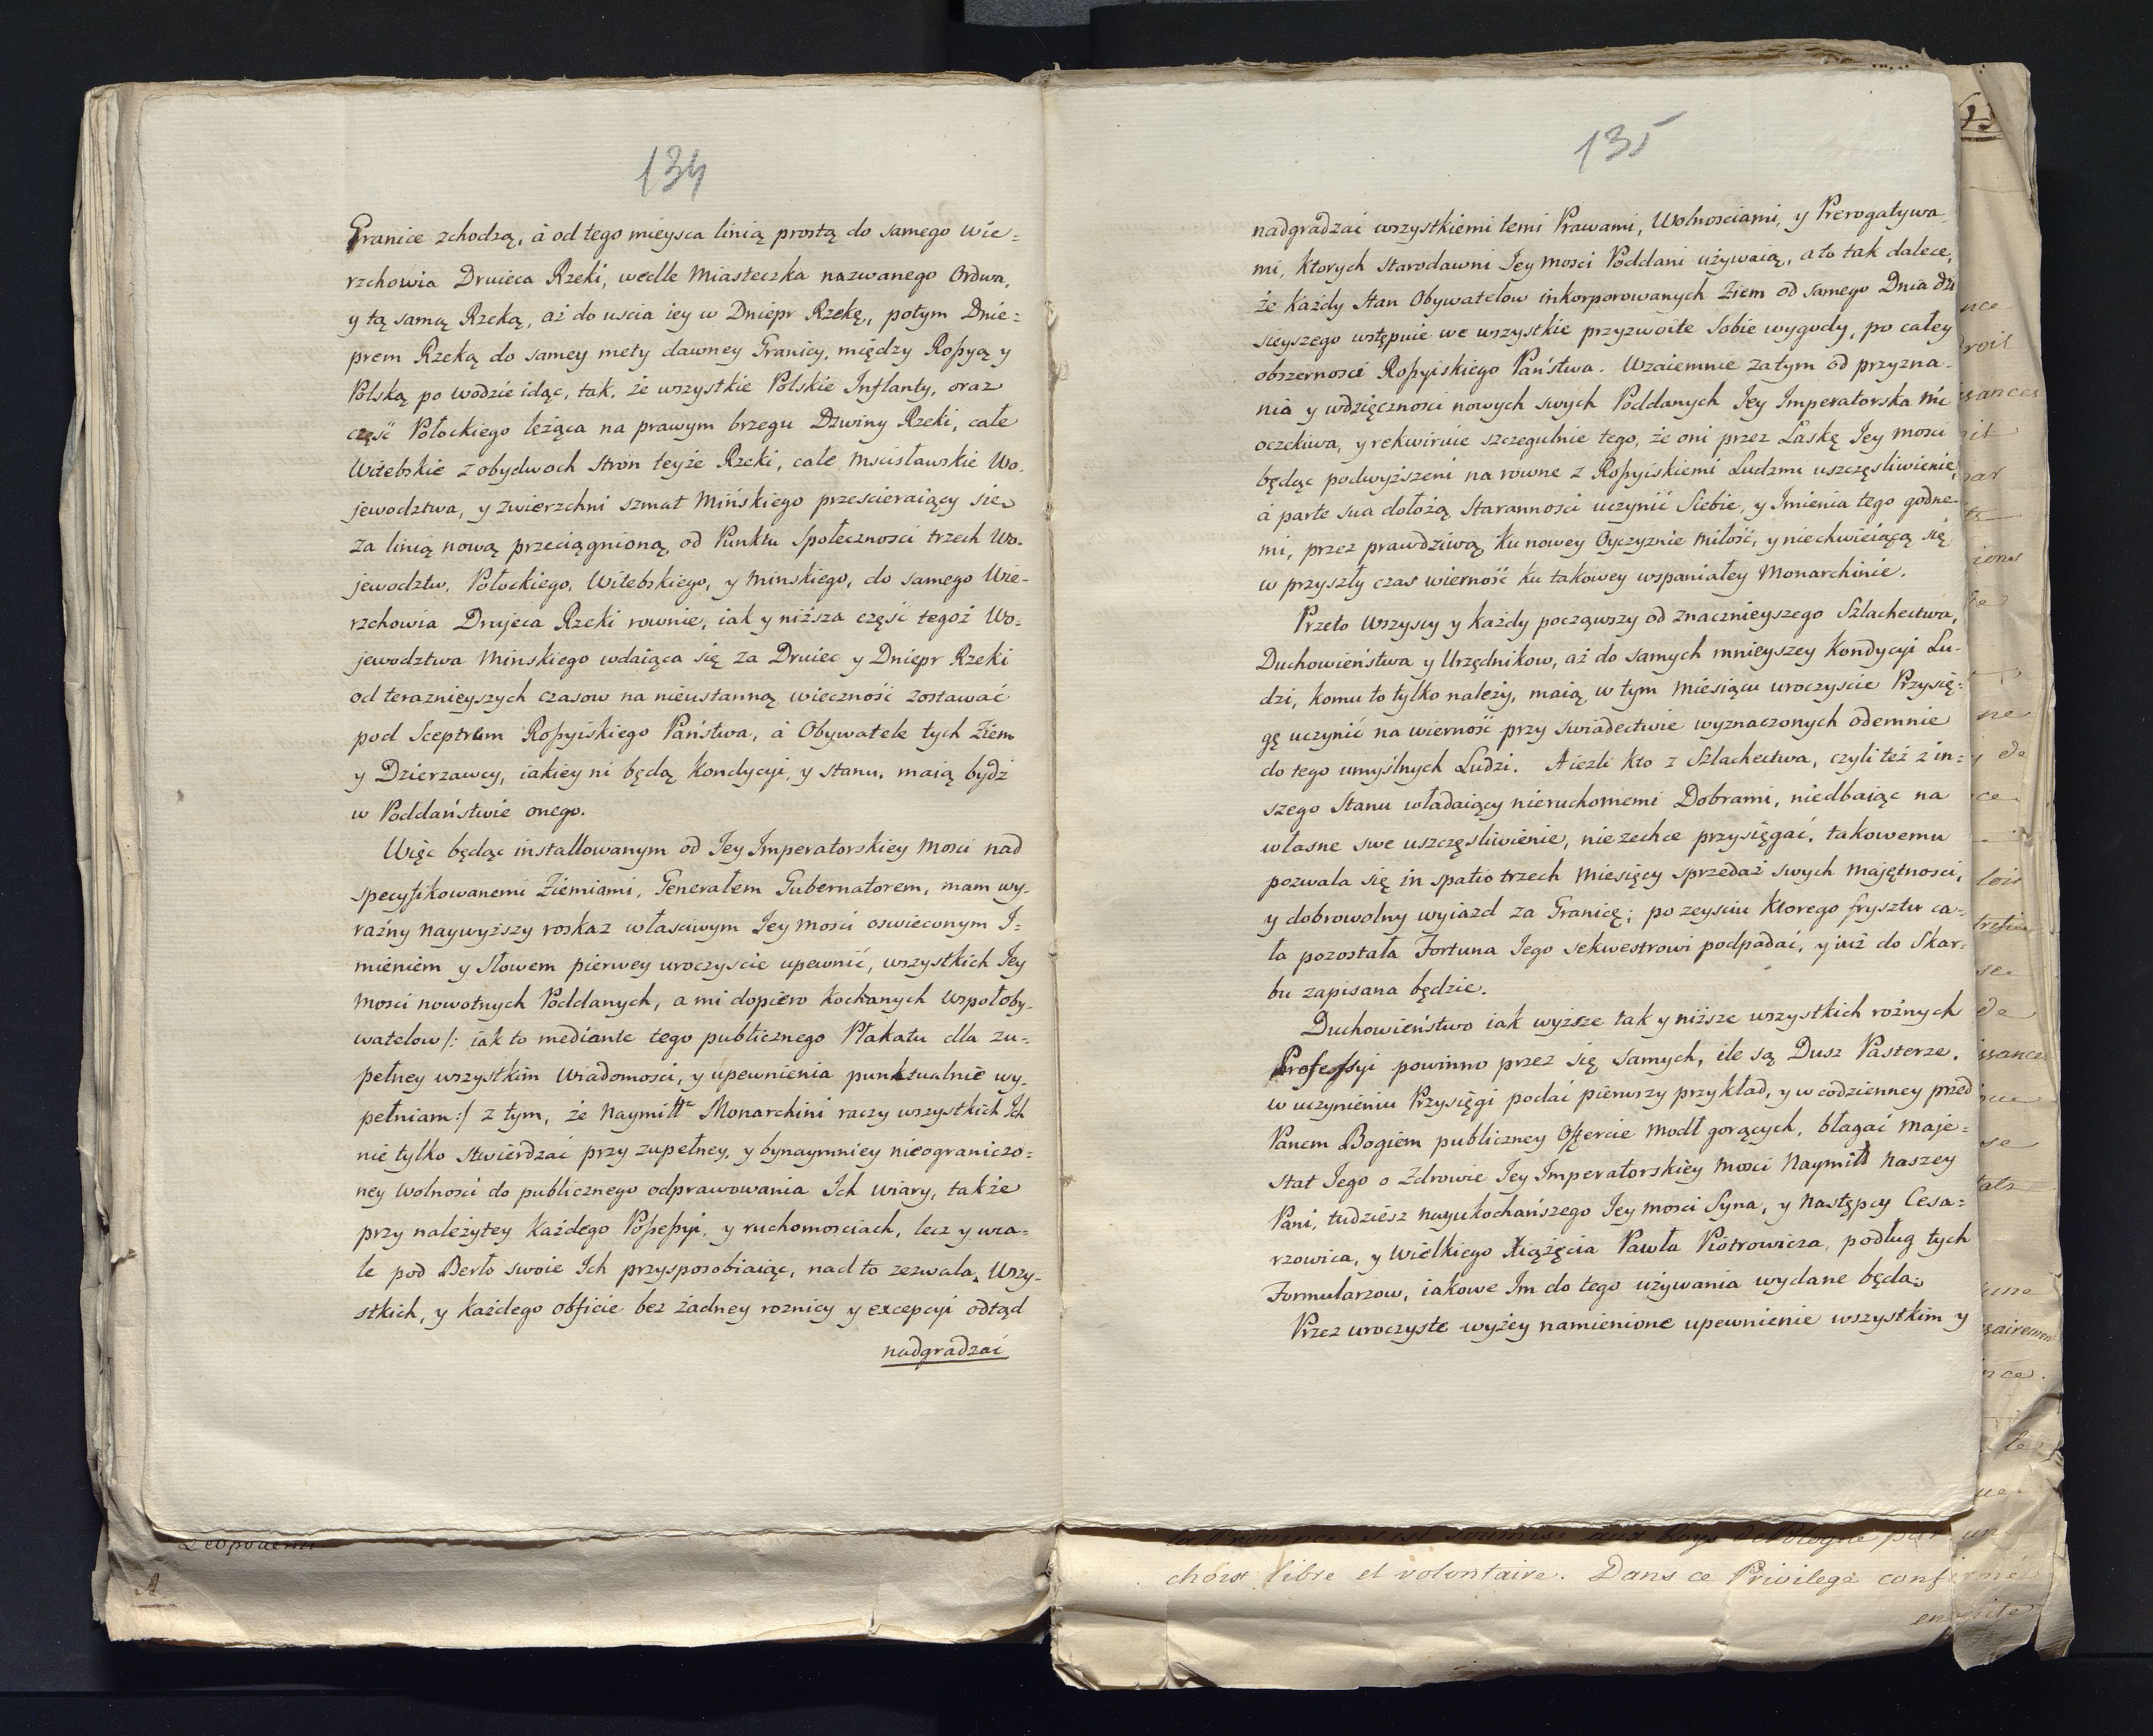 134
Granice zchodzą, á od tego mieysca linią prostą do samego Wie=
rzchowia Druieca Rzeki, wedle Miasteczka nazwanego Ordwa,
y tą samą Rzeką, aż do uscia iey w Dniepr Rzekę, potym Dnie=
prem Rzeką do samey mety dawney Granicy, między Rossyą y
Polską po wodzie idąc, tak, że wszystkie Polskie Inflanty, oraz
część Połockiego leżąca na prawym brzegu Dzwiny Rzeki, całe
Witebskie z obydwoch stron teyże Rzeki, całe Mscisławskie Wo-
jewodztwa, y zwierzchni szmat Mińskiego prześcieraiący sie
za linią nową przeciągnioną, od Punktu Społeczności trzech Wo-
jewodztw, Połockiego, Witebskiego, y Minskiego, do samego Wie-
rzchowia Drujeca Rzeki rownie, iak y niższa część tegoż Wo=
jewodztwa Minskiego wdaiąca się za Druiec y Dniepr Rzeki
od teraznieyszych czasow na nieustanną wieczność zostawać
pod Sceptrum Rossyiskiego Państwa, á Obywatele tych Ziem
y Dzierzawcy, iakiey ni będą Kondycyi, y stanu, maią bydź
w Poddaństwie onego.
Więc będąc installowanym od Jey Imperatorskiey Mosci nad
specyfikowanemi Ziemiami, Generałem Gubernatorem, mam wy-
raźny naywyższy roskaz własciwym Jey Mosci oswieconym I=
mieniem y Słowem pierwey uroczyscie upewnić, wszystkich Jey
Mosci nowotnych Poddanych, a mi dopiero kochanych Wspołoby-
watelow /: iak to mediante tego publicznego Plakatu dla zu-
pełney wszystkim Wiadomosci, y upewnienia punktualnie wy-
pełniam :/ z tym, że Naymiłł Monarchini raczy wszystkich Ich
nie tylko stwierdzać przy zupełney, y bynaymniey nieograniczo=
ney Wolnosci do publicznego odprawowania Ich Wiary, także
przy należytey każdego Possessyi, y ruchomosciach, lecz y wca=
le pod Berło swoie Ich przysposobiaiąc, nad to zezwala, Wszy-
stkich, y każdego obficie bez żadney roznicy y excepcyi odtąd
nadgradzać
135
nadgradzać wszystkiemi temi Prawami, Wolnosciami, y Prerogatywa
mi, ktorych starodawni Jey Mosci Poddani używaią, a to tak dalece,
że każdy Stan Obywatelow inkorporowanych Ziem od samego Dnia dzi
sieyszego wstępuie we wszystkie przyzwoite Sobie wygody, po całey
obszernosci Rossyiskiego Państwa. Wzaiemnie zatym od przyzna-
nia y wdzięcznosci nowych swych Poddanych Jey Imperatorska Mć
oczekiwa, y rekwiruie szczegulnie tego, że oni przez Łaskę Jey Mosci
będąc podwyższeni na rowne z Rossyiskiemi Ludzmi uszczęsliwienie,
á parte sua dołożą Starannosci uczynić Siebie, y Imienia tego godne-
mi, przez prawdziwą ku nowey Oyczyznie miłość, y niechwieiącą się
w przyszły czas wierność ku takowey wspaniałey Monarchinie.
Przeto Wszyscy y każdy począwszy od znacznieyszego Szlachectwa,
Duchowieństwa y Urzędnikow, aż do samych mnieyszey Kondycyi Lu-
dzi, komu to tylko należy, maią w tym Miesiącu uroczyscie Przysię=
gę uczynić na wierność przy swiadectwie wyznaczonych odemnie
do tego umyślnych Ludzi. A iezli kto z Szlachectwa, czyli też z in=
szego Stanu władaiący nieruchomemi Dobrami, niedbaiąc na
własne swe uszczęsliwienie, nie zechce przysięgać, takowemu
pozwala się in spatio trzech Miesięcy sprzedaż swych majętnosci,
y dobrowolny wyiazd za Granicę; po zeysciu ktorego frysztu ca-
ła pozostała Fortuna Iego sekwestrowi podpadać, y iuż do Skar-
bu zapisana będzie.
Duchowieństwo iak wyższe tak y niższe wszystkich rożnych
Professyi powinno przez się samych, ile są Dusz Pasterze,
w uczynieniu Przysięgi podać pierwszy przykład, y w codzienney przed
Panem Bogiem publiczney Offercie modł gorących, błagać Maje=
stat Iego o Zdrowie Jey Imperatorskiey Mosci Naymiłł Naszey
Pani, tudziesz nayukochańszego Jey Mosci Syna, y Następcy Cesa=
rzowica, y Wielkiego Xiążęcia Pawła Piotrowicza, podług tych
Formularzow, iakowe Im do tego używania wydane będą.
Przez uroczyste wyżey namienione upewnienie wszystkim y
choix libre et volontaire. Dans ce Privilege confirmé
ensuite